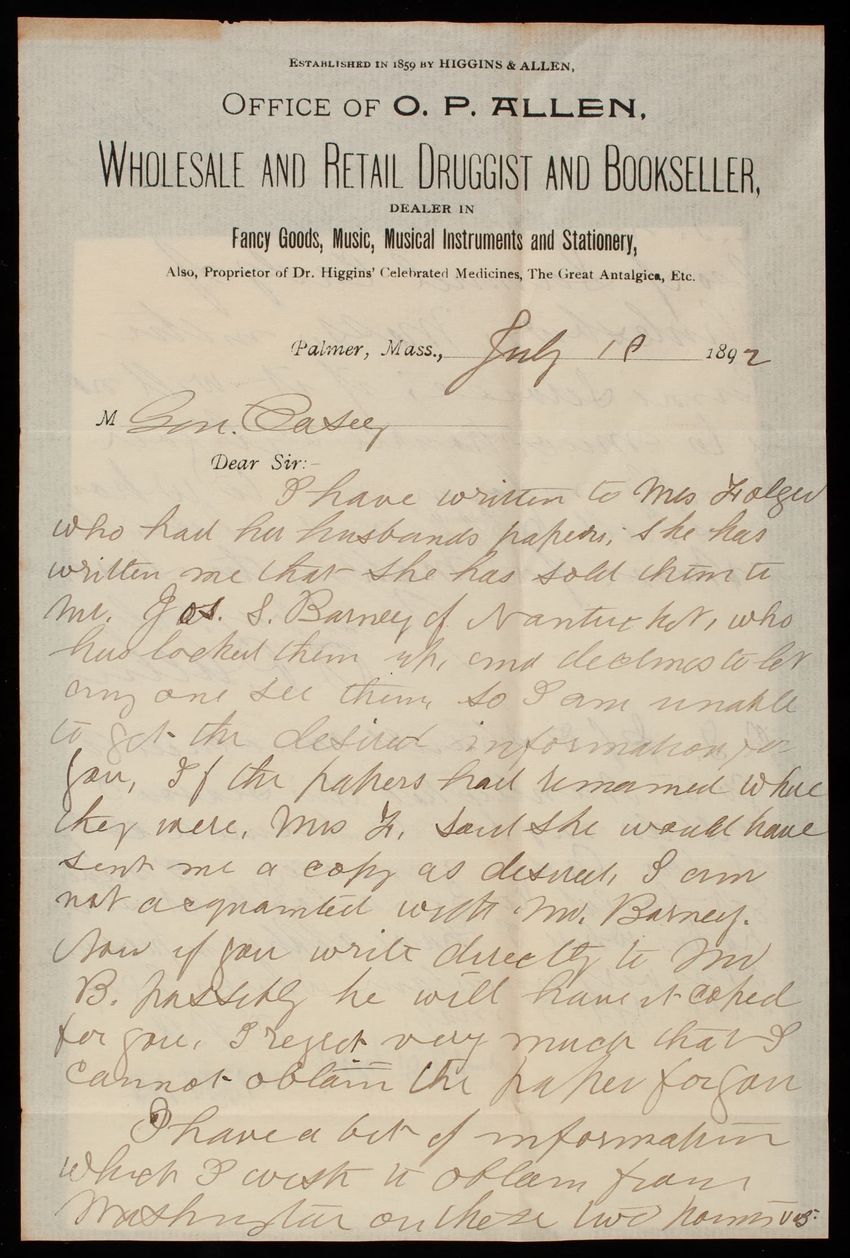 ESTABLISHED IN 1859 BY HIGGINS & ALLEN,
OFFICE OF O. P. ALLEN,
WHOLESALE AND RETAIL DRUGGIST AND BOOKSELLER,
DEALER IN
Fancy Goods, Music, Musical Instruments and Stationery,
Also, Proprietor of Dr. Higgins' Celebrated Medicines, The Great Antalgica, Etc.
Palmer, Mass., July 18 1892
M Gen. Casey
Dear Sir:-
I have written to Mrs Folger
who had her husbands papers; she has
written me that she has sold them to
Mr. Jos. S. Barney of Nantucket, who
has locked them up, and declines to let
any one see them, so I am unable
to get the desired information for
you, If the papers had remained where
they were, Mrs F. said she would have
sent me a copy as desired, I am
not acquainted with Mr. Barney.
Now if you write directly to Mr
B. possibly he will have it copied
for you, I regret very much that I
cannot obtain the paper for you
I have a bit of information
which I wish to obtain from
Washington on these two points viz: